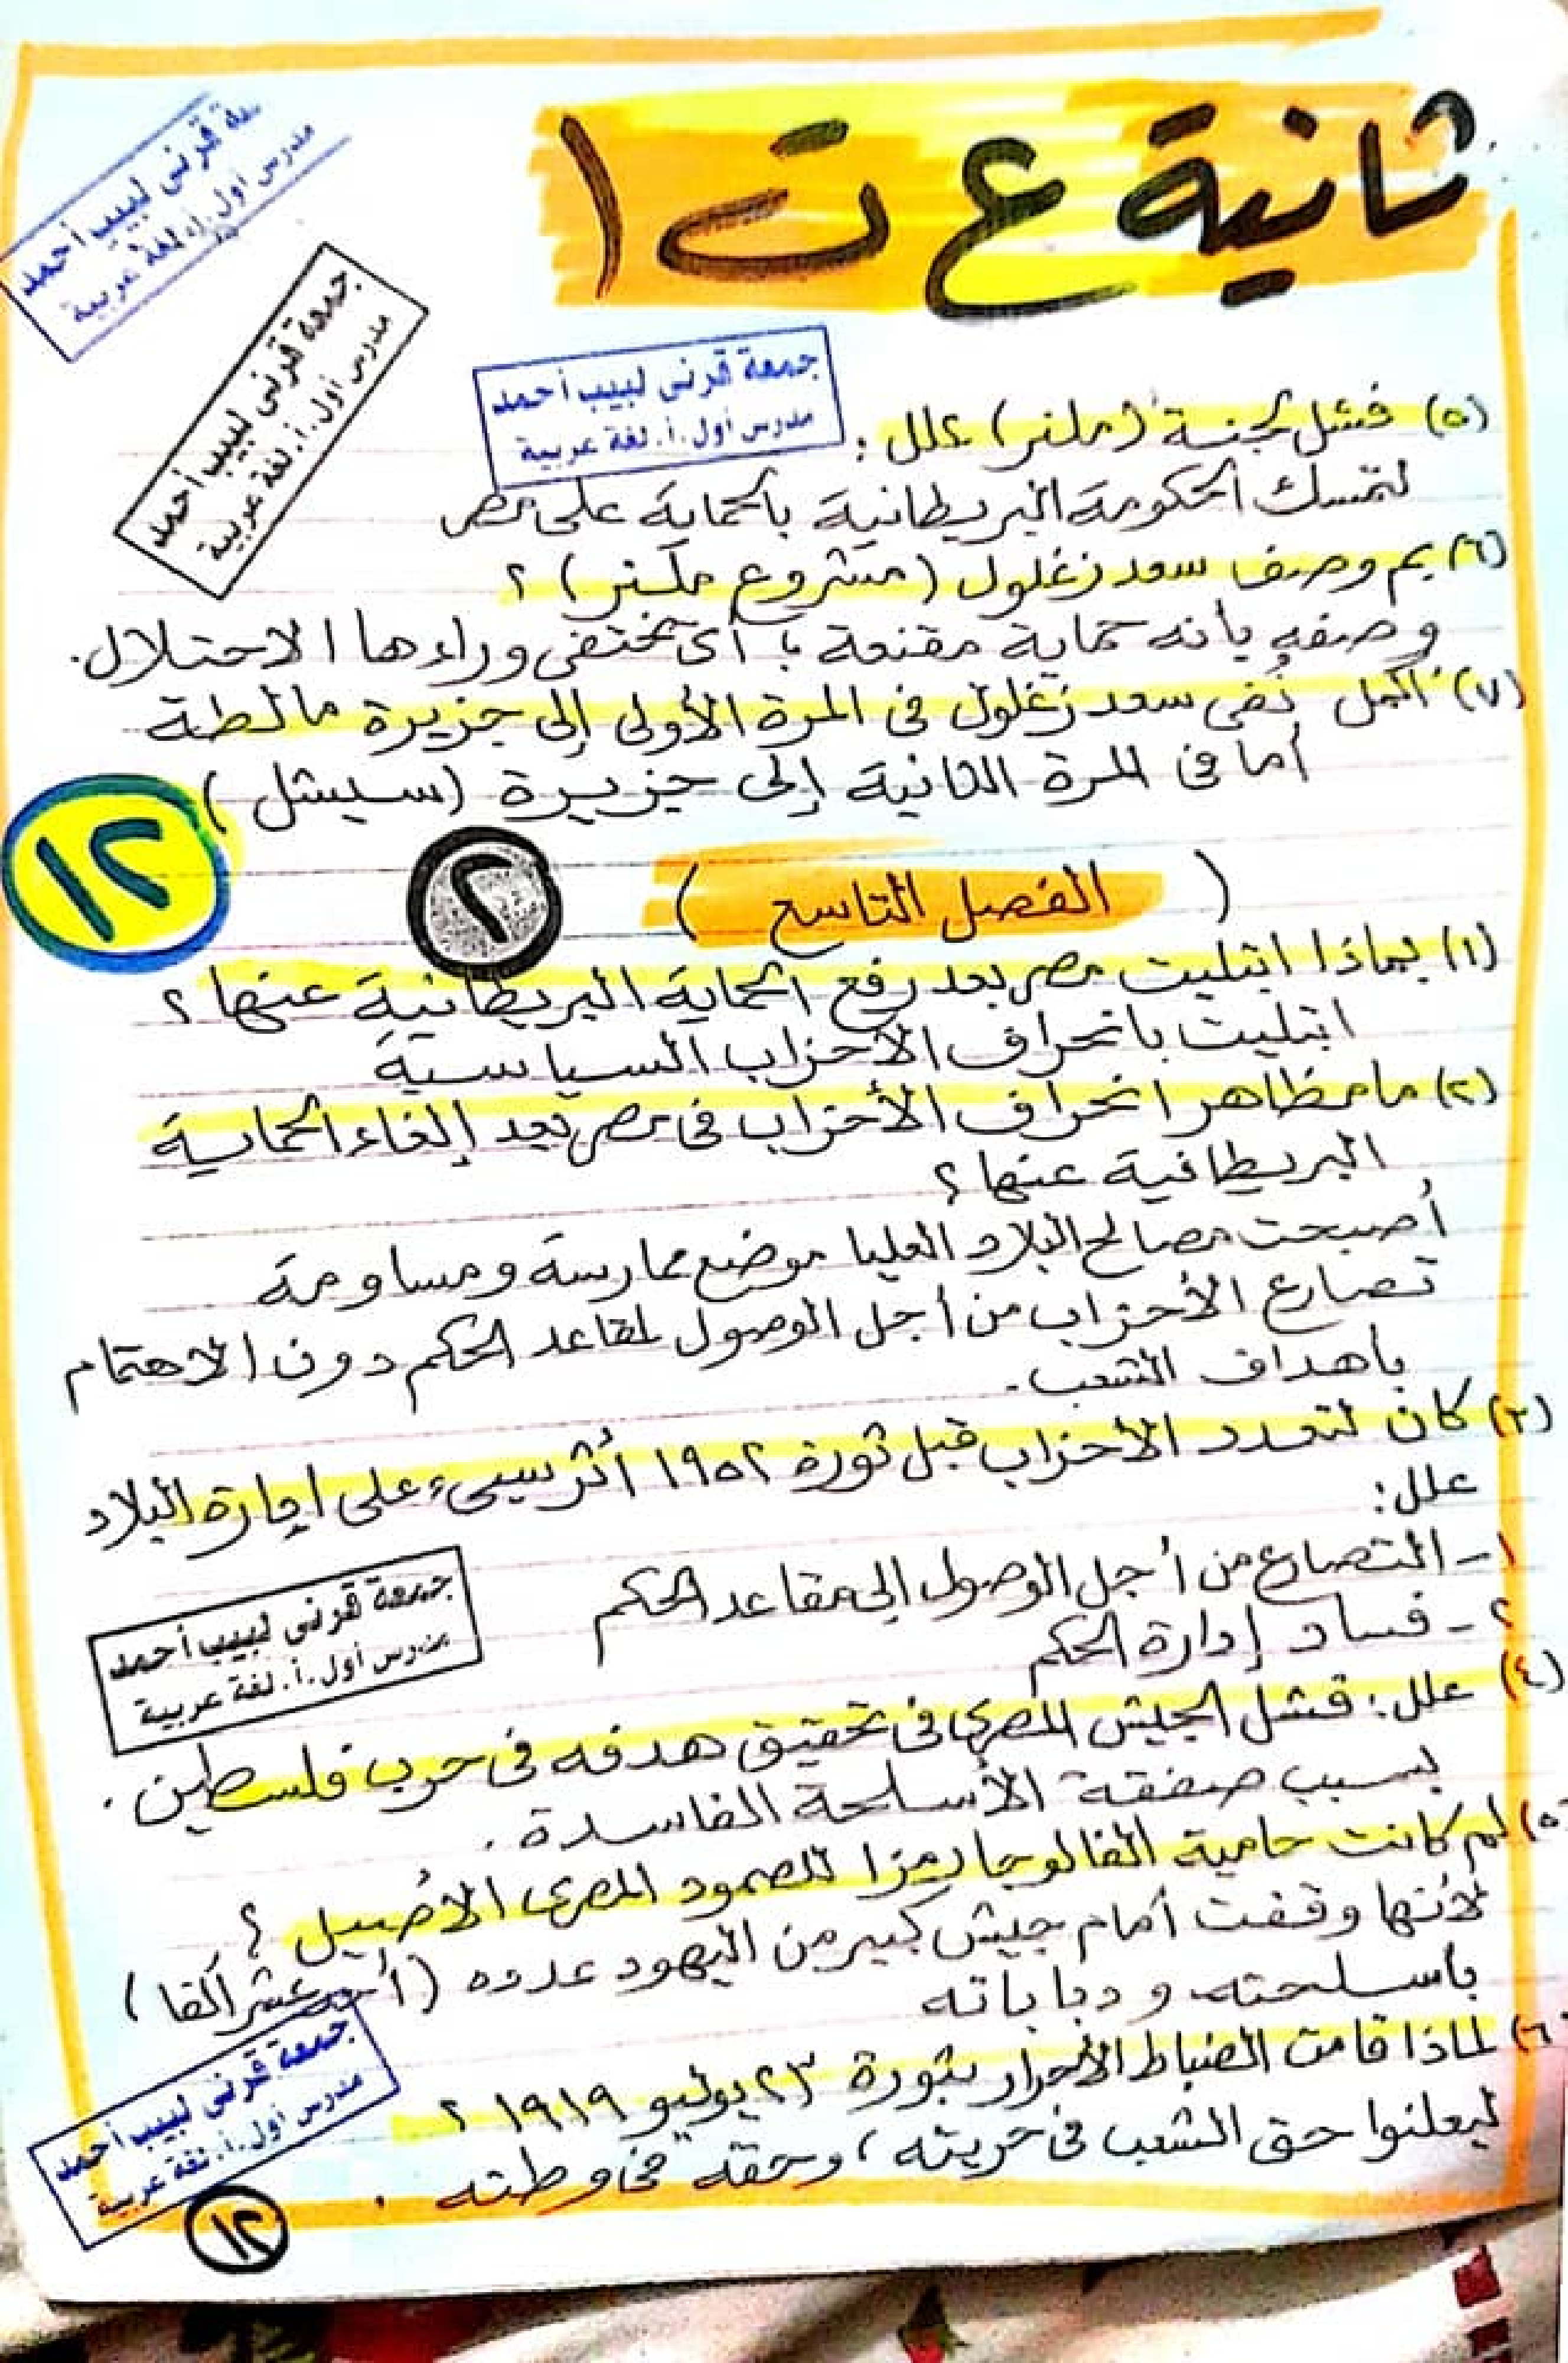 ثانية ع ت ١
ـة قرنى لبيب أحمد
مدرس أول.أ. لغة عربية
جمعة قرنى لبيب أحمد
مدرس أول.أ. لغة عربية
جمعة قرنى لبيب أحمد
مدرس أول.أ. لغة عربية
(٥) فشل لجنة (ملنر) علل :
لتمسك الحكومة البريطانية بالحماية على مصر
(٦) بم وصف سعد زغلول (مشروع ملنر) ؟
وصفه بأنه حماية مقنعة ؛ أى يختفى وراءها الاحتلال.
(٧) أكمل نُفى سعد زغلول فى المرة الأولى إلى جزيرة مالطة
أما فى المرة الثانية إلى جزيرة (سيشل)
١٢
٢
( الفصل التاسع )
(١) بماذا ابتليت مصر بعد رفع الحماية البريطانية عنها ؟
ابتليت بانحراف الأحزاب السياسية
(٢) ما مظاهر انحراف الأحزاب فى مصر بعد إلغاء الحماية
البريطانية عنها ؟
أصبحت مصالح البلاد العليا موضع ممارسة ومساومة
تصارع الأحزاب من أجل الوصول لمقاعد الحكم دون الاهتمام
بأهداف الشعب.
(٣) كان لتعدد الأحزاب قبل ثورة ١٩٥٢ أثر سيىء على إدارة البلاد
علل:
١- التصارع من أجل الوصول إلى مقاعد الحكم
٢- فساد إدارة الحكم
جمعة قرنى لبيب أحمد
مدرس أول.أ. لغة عربية
(٤) علل: فشل الجيش المصرى فى تحقيق هدفه فى حرب فلسطين .
بسبب صفقة الأسلحة الفاسدة .
(٥) لم كانت حامية الفالوجا رمزا للصمود المصرى الأصيل ؟
لأنها وقفت أمام جيش كبير من اليهود عدده ( عشر ألفا )
بأسلحته ودباباته
(٦) لماذا قامت الضباط الأحرار بثورة ٢٣ يوليو ١٩١٩ ؟
ليعلنوا حق الشعب فى حريته ، وحقه فى وطنه .
جمعة قرنى لبيب أحمد
مدرس أول.أ. لغة عربية
١٢